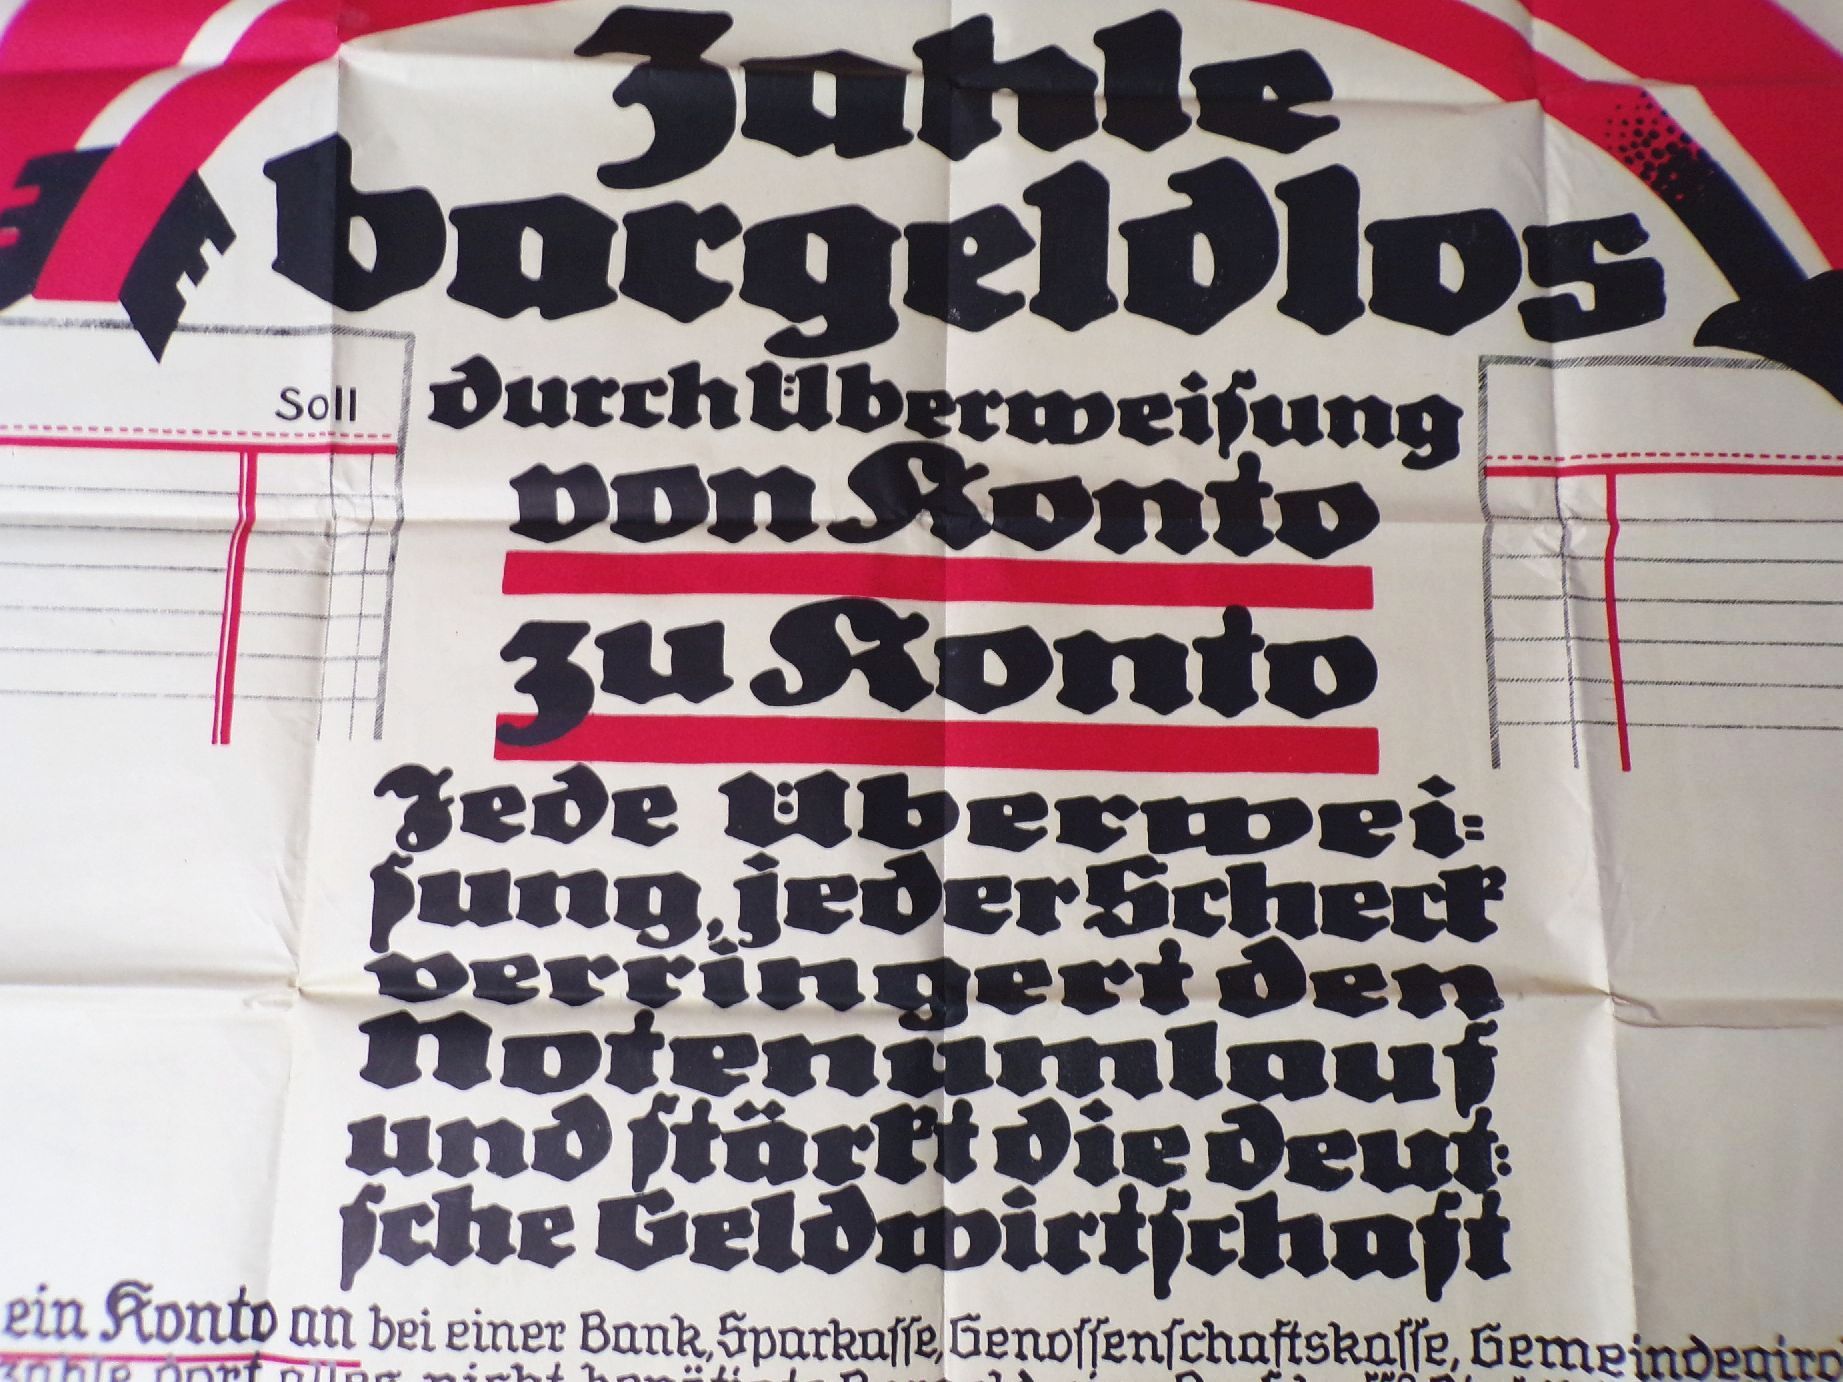 Zahle
bargeldlos
durch Überweiſung
von Konto
zu Konto
Soll
Jede Überwei⸗
ſung, jeder Scheck
verringert den
Notenumlauf
und ſtärkt die deut⸗
ſche Geldwirtſchaft
ein Konto an bei einer Bank, Sparkaſſe, Genoſſenſchaftskaſſe, Gemeindegiro
zahle dort alles nicht benötigte Bargeld